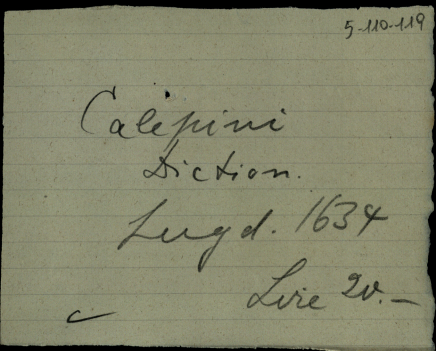 5-110-119
Calepini
Diction.
Lugd. 1634
Lire 20.—